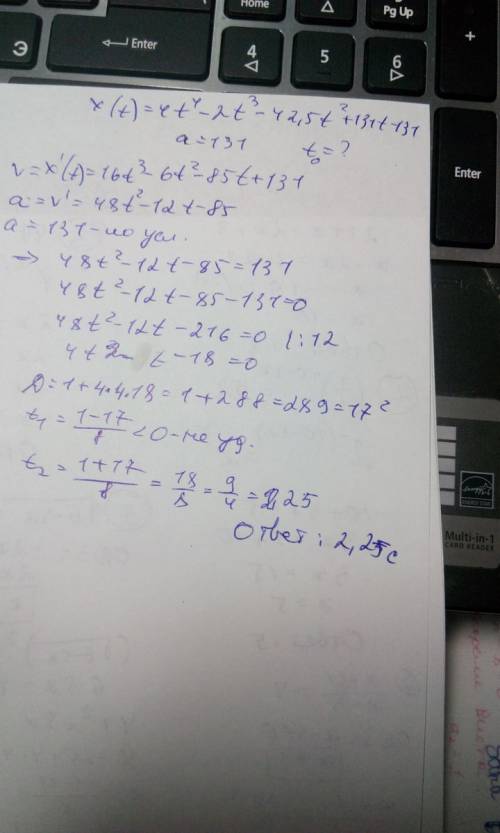 Home
Pg Up
Э
Enter
4
5
6
+
Enter
x(t)=4t⁴-2t³-42,5t²+131t-131
a=131 t₀=?
v=x'(t)=16t³-6t²-85t+131
a=v'=48t²-12t-85
a=131-по усл.
⇒ 48t²-12t-85=131
48t²-12t-85-131=0
48t²-12t-216=0 |:12
4t²- t-18=0
D=1+4.4.18=1+288=289=17²
t₁=(1-17)/8<0-не уд.
t₂=(1+17)/8=18/8=9/4=2,25
Ответ: 2,25с
Multi-in-1
CARD READER